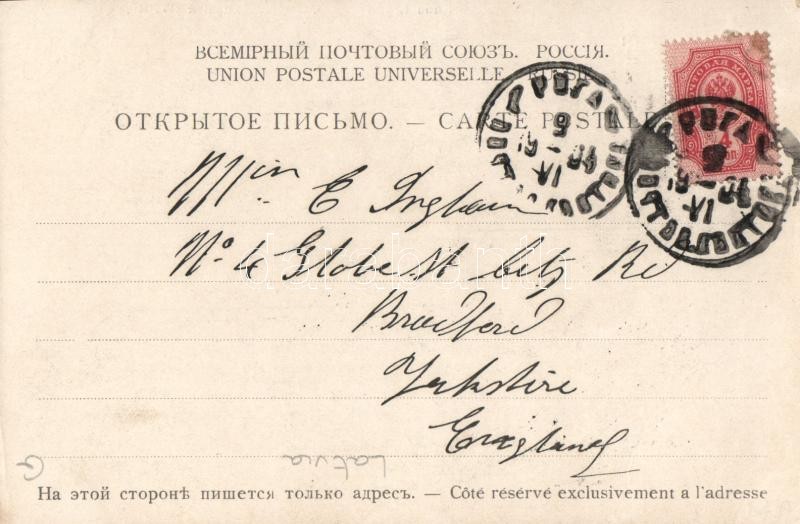 ВСЕМІРНЫЙ ПОЧТОВЫЙ СОЮЗЪ. РОССІЯ.
UNION POSTALE UNIVERSELLE. RUSSIE
ОТКРЫТОЕ ПИСЬМО. — CARTE POSTALE
РИГА
РИГА
4
Miss E Ingham
No 4 Globe St
Bradford
Yorkshire
England
Latvia
G
На этой сторонѣ пишется только адресъ. — Côté réservé exclusivement a l'adresse